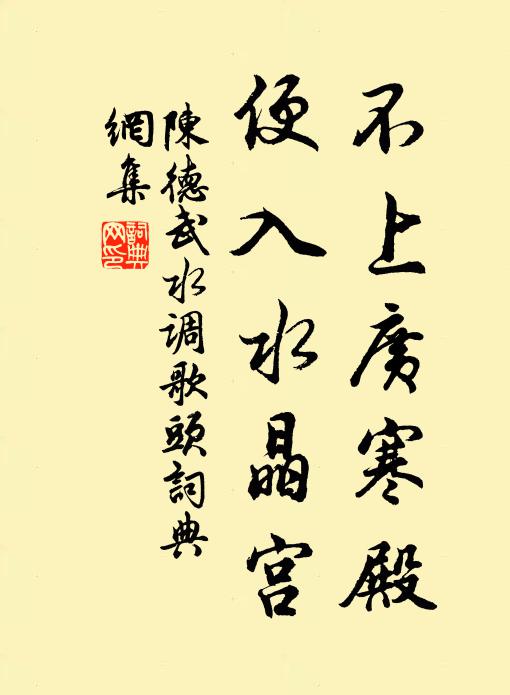 不上廣寒殿
便入水晶宮
陳德武水调歌頭詞典
網集
詞典
网印